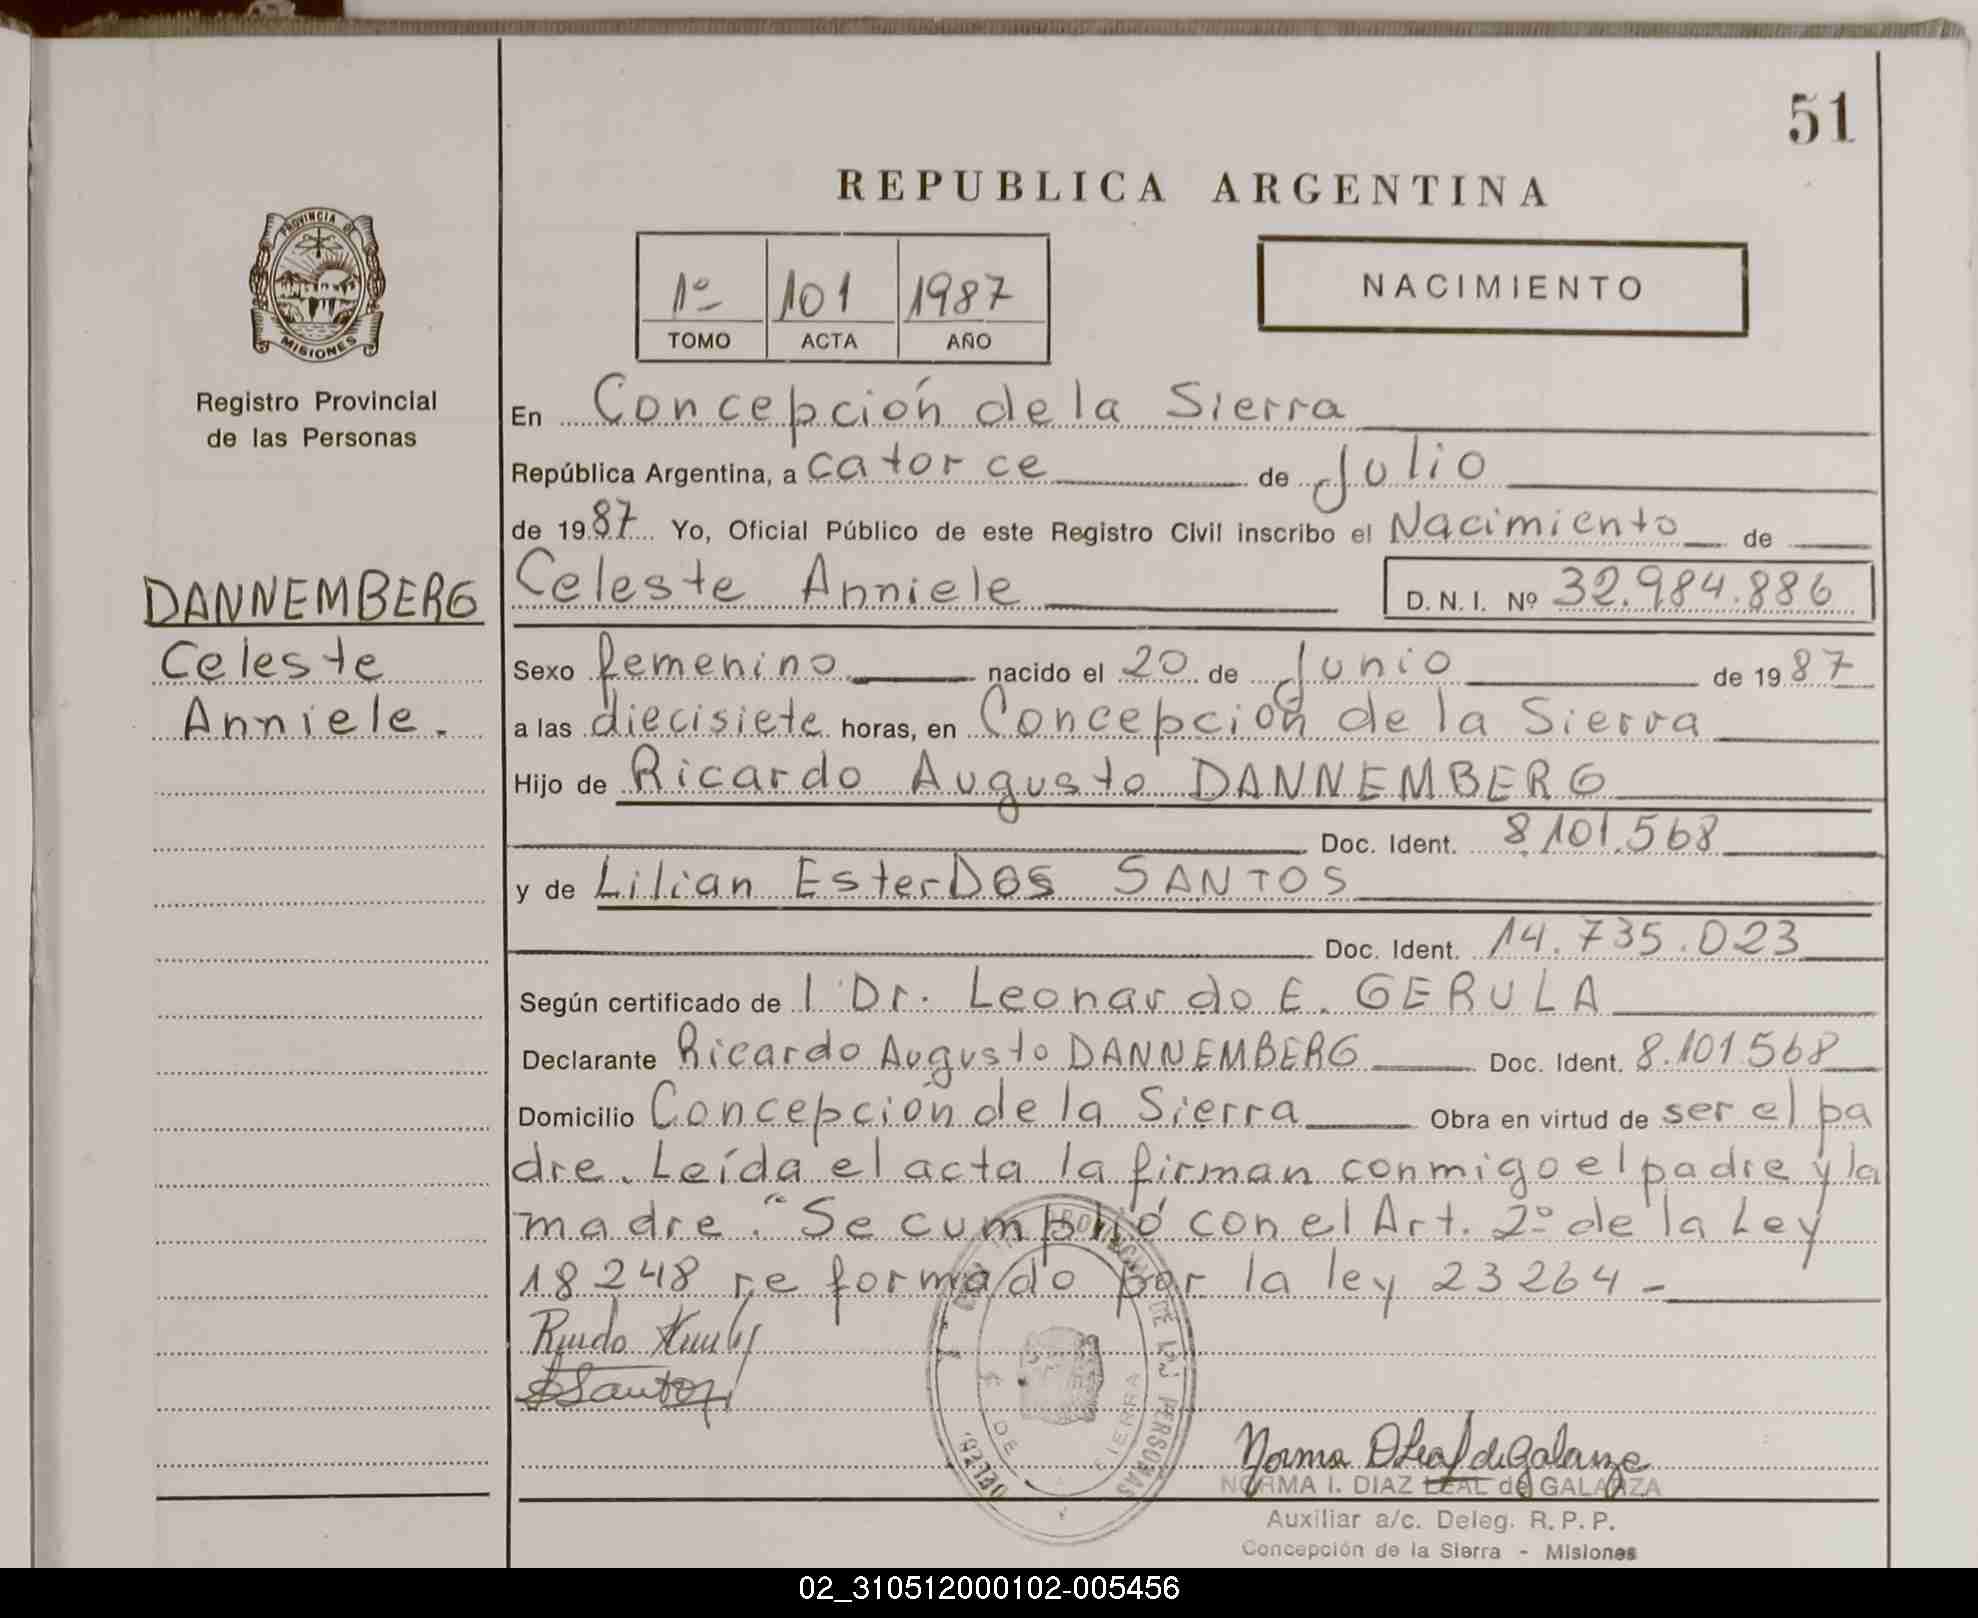 51
REPUBLICA ARGENTINA
PROVINCIA DE
MISIONES
Registro Provincial
de las Personas
1º 101 1987
TOMO ACTA AÑO
NACIMIENTO
En Concepción de la Sierra
República Argentina, a catorce de Julio
de 1987 Yo, Oficial Público de este Registro Civil inscribo el Nacimiento de
DANNEMBERG
Celeste
Anniele.
Celeste Anniele D.N.I. Nº 32.984.886
Sexo femenino nacido el 20 de Junio de 1987
a las diecisiete horas, en Concepción de la Sierra
Hijo de Ricardo Augusto DANNEMBERG
Doc. Ident. 8.101.568
y de Lilian Ester Dos SANTOS
Doc. Ident. 14.735.023
Según certificado de l Dr. Leonardo E. GERULA
Declarante Ricardo Augusto DANNEMBERG Doc. Ident. 8.101.568
Domicilio Concepción de la Sierra Obra en virtud de ser el pa
dre. Leída el acta la firman conmigo el padre y la
madre. "Se cumplió con el Art. 2º de la Ley
18248 reformado por la ley 23264 -
DE LAS PERSONAS
DE SIERRA
NORMA I. DIAZ LEAL de GALARZA
Auxiliar a/c. Deleg. R.P.P.
Concepción de la Sierra - Misiones
02_310512000102-005456